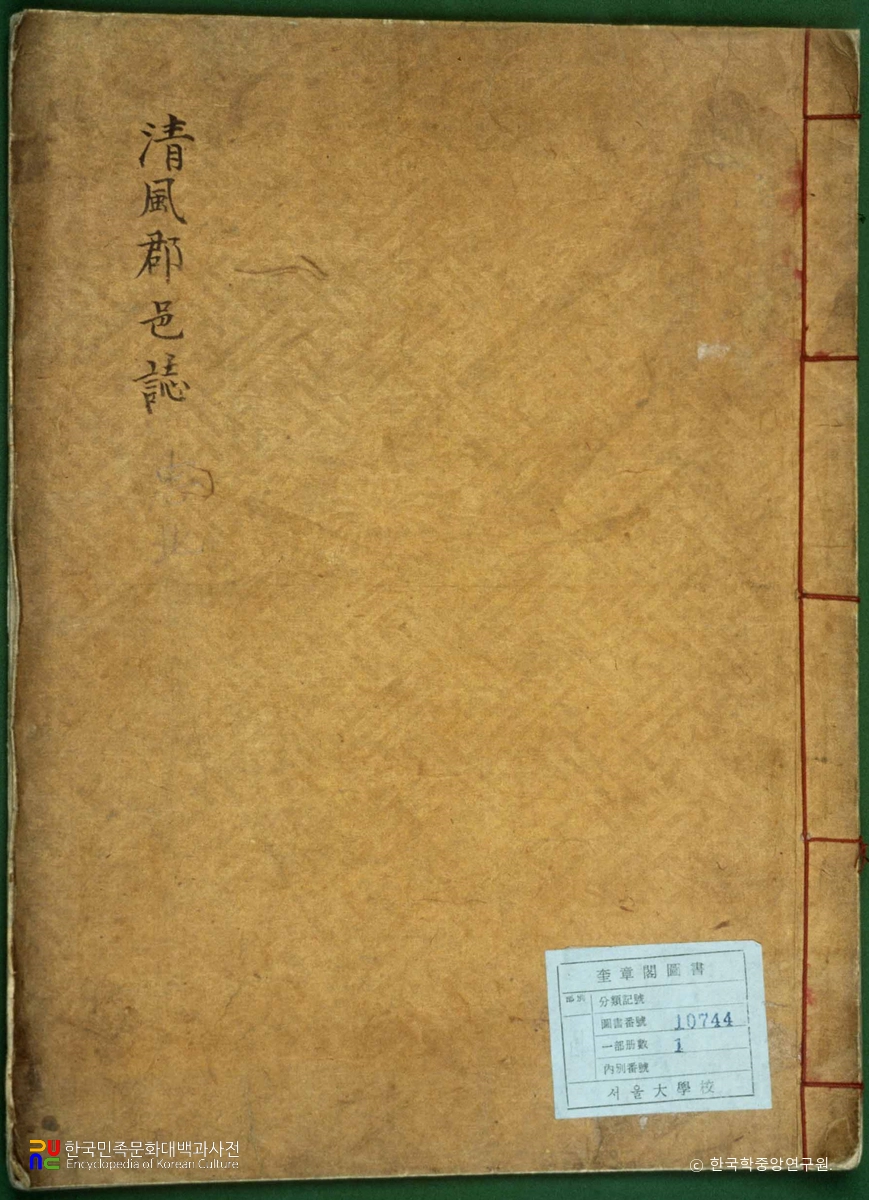 清風郡邑誌
忠北
奎章閣圖書
分類記號
圖書番號 10744
一部册數 1
內別番號
서울大學校
한국민족문화대백과사전
Encyclopedia of Korean Culture
© 한국학중앙연구원